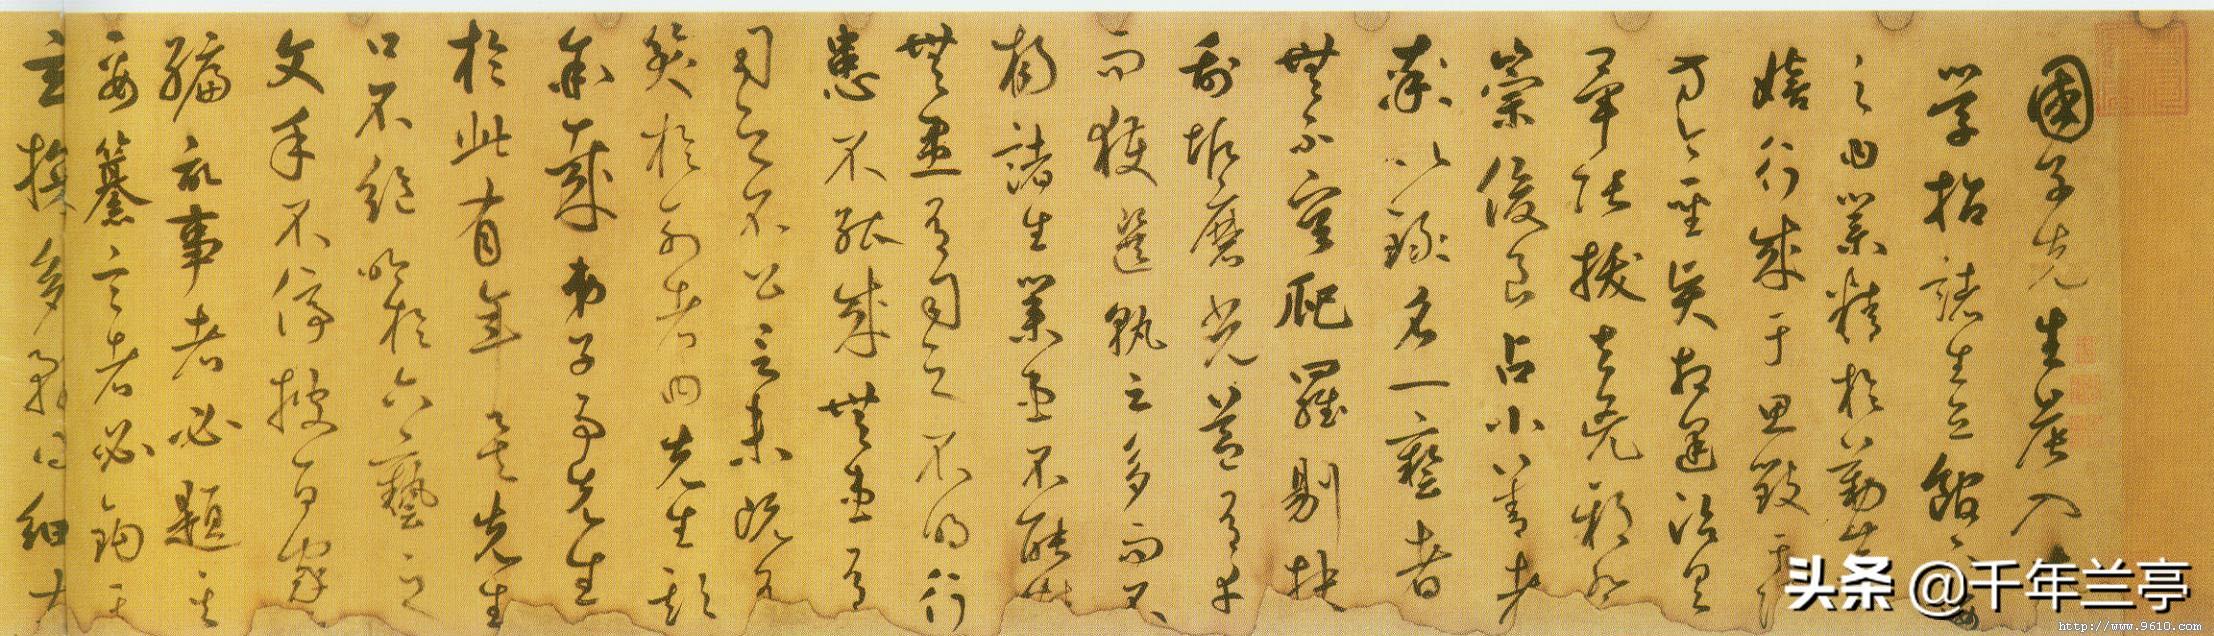 國子先生晨入
學招諸生立館下誨
之曰業精於勤荒
嬉行成于思毀于隨
方今聖賢相逢治具
畢張拔去兇邪登
崇俊良占小善者
率以錄名一藝者
無不容爬羅剔抉
刮垢磨光蓋有幸
而獲選孰云多而不
揚諸生業患不能精
無患有司之不明行
患不能成無患有
司之不公言未既有
笑於列者曰先生欺
余哉弟子事先生
於此有年矣先生
口不絕吟於六藝之
文手不停披百家
編記事者必題其
要纂言者必鉤其
玄多務得細大
头条 @千年兰亭
http://www.9610.com